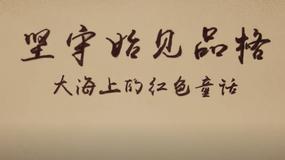 坚守始见品格
大海上的红色童话